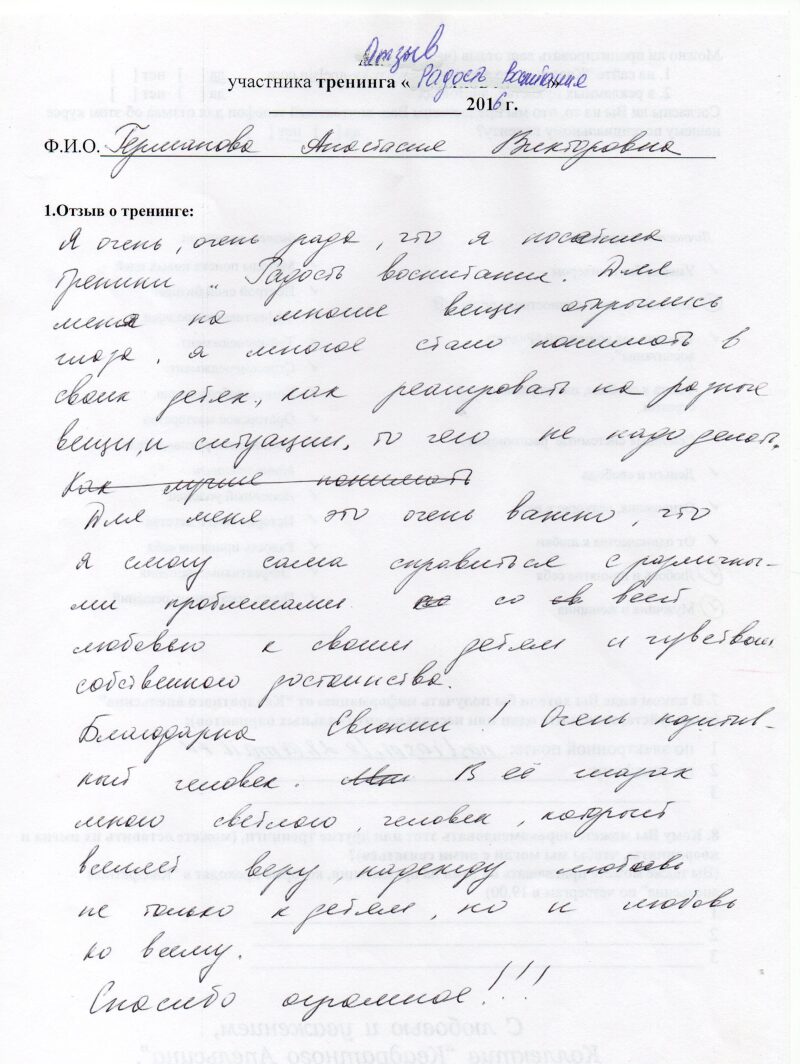 Отзыв
участника тренинга « Радость Воспитания »
2016 г.
Ф.И.О. Германова Анастасия Викторовна
1.Отзыв о тренинге:
Я очень, очень рада, что я посетила
тренинг „ Радость воспитания. Для
меня на многие вещи открылись
глаза, я многое стала понимать в
своих детях, как реагировать на разные
вещи, и ситуации, то чего не надо делать.
Как лучше понимать
Для меня это очень важно, что
я смогу сама справиться с различны-
ми проблемами со всей
любовью к своим детям и чувством
собственного достоинства.
Благодарна Евгении! Очень позитив-
ный человек. В её глазах
много светлого, человек, который
вселяет веру, надежду любовь
не только к детям, но и любовь
ко всему.
Спасибо огромное!!!